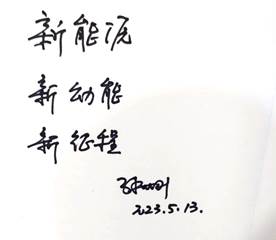 新能源
新动能
新征程
2023.5.13.